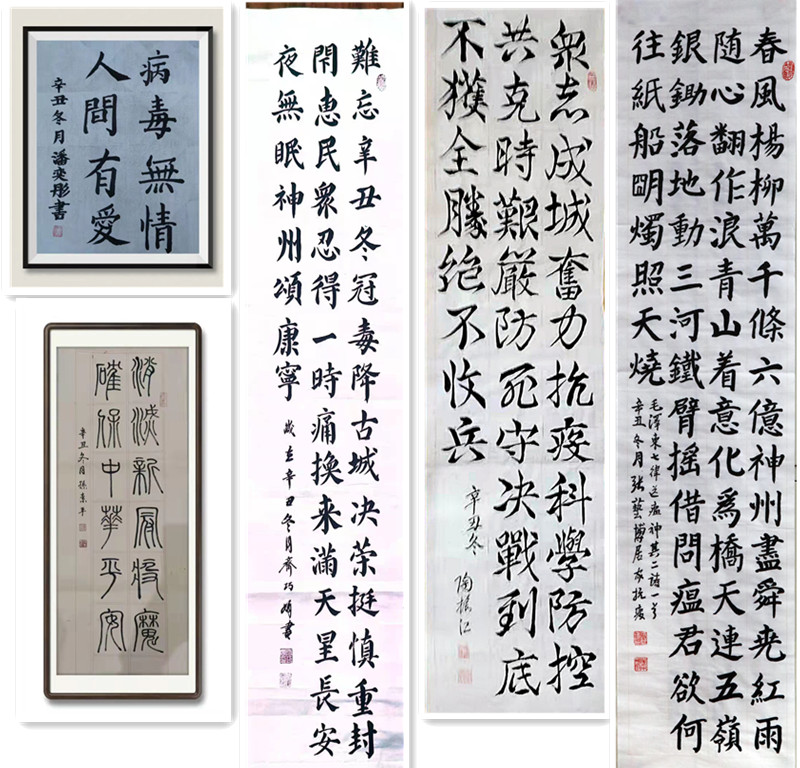 病毒無情
人間有愛
辛丑冬月潘奕彤書
消滅新冠疫魔
確保中華平安
辛丑冬月孫
難忘辛丑冬冠毒降古城决荣挺慎重封
閇惠民衆忍得一時痛换来滿天星長安
夜無眠神州頌康寧
歲在辛丑冬月齊巧書
衆志成城奮力抗疫科學防控
共克時艱嚴防死守决戰到底
不獲全勝绝不收兵
辛丑冬
陶振江
春風楊柳萬千條六億神州盡舜尭紅雨
随心翻作浪青山着意化爲橋天連五嶺
銀鋤落地動三河鐵臂摇借問瘟君欲何
往紙船明燭照天燒
毛澤東七律送瘟神其二詩一首
辛丑冬月張藝居家抗疫